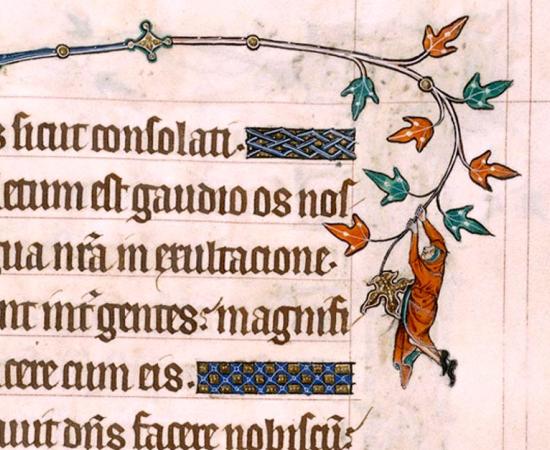 s sicut consolati.
letum est gaudio os nos
gua nr̄a in exultacione.
nt int̄ gentes: magnifi
cere cum eis.
auit dn̄s facere nobiscū: